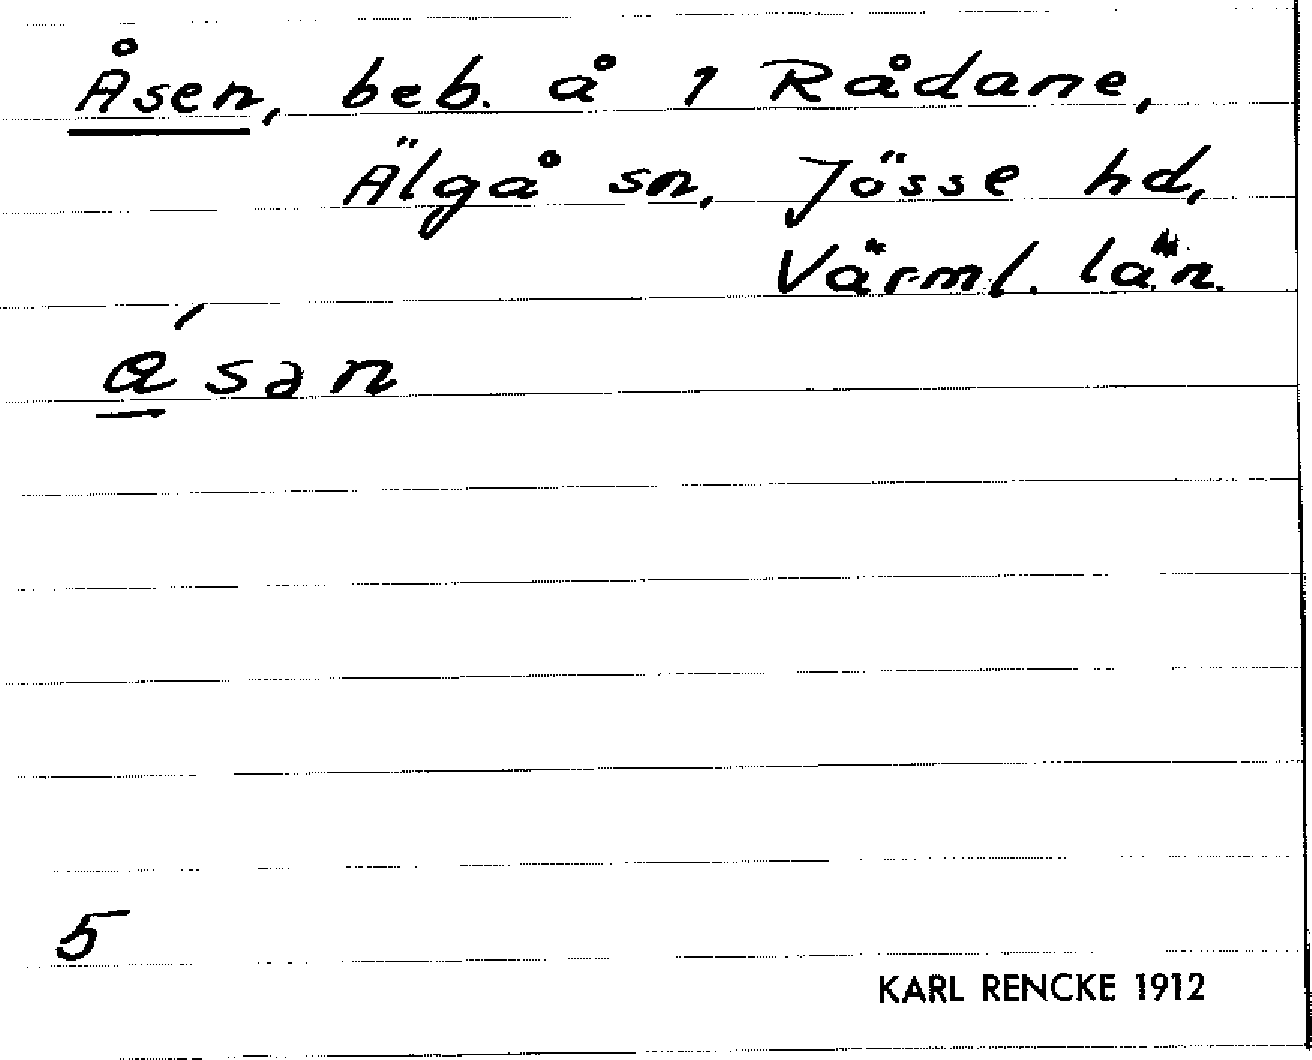 Åsen, beb. å 1 Rådane,
Älgå sn, Jösse hd,
Värml. län.
a̲´san
5
KARL RENCKE 1912